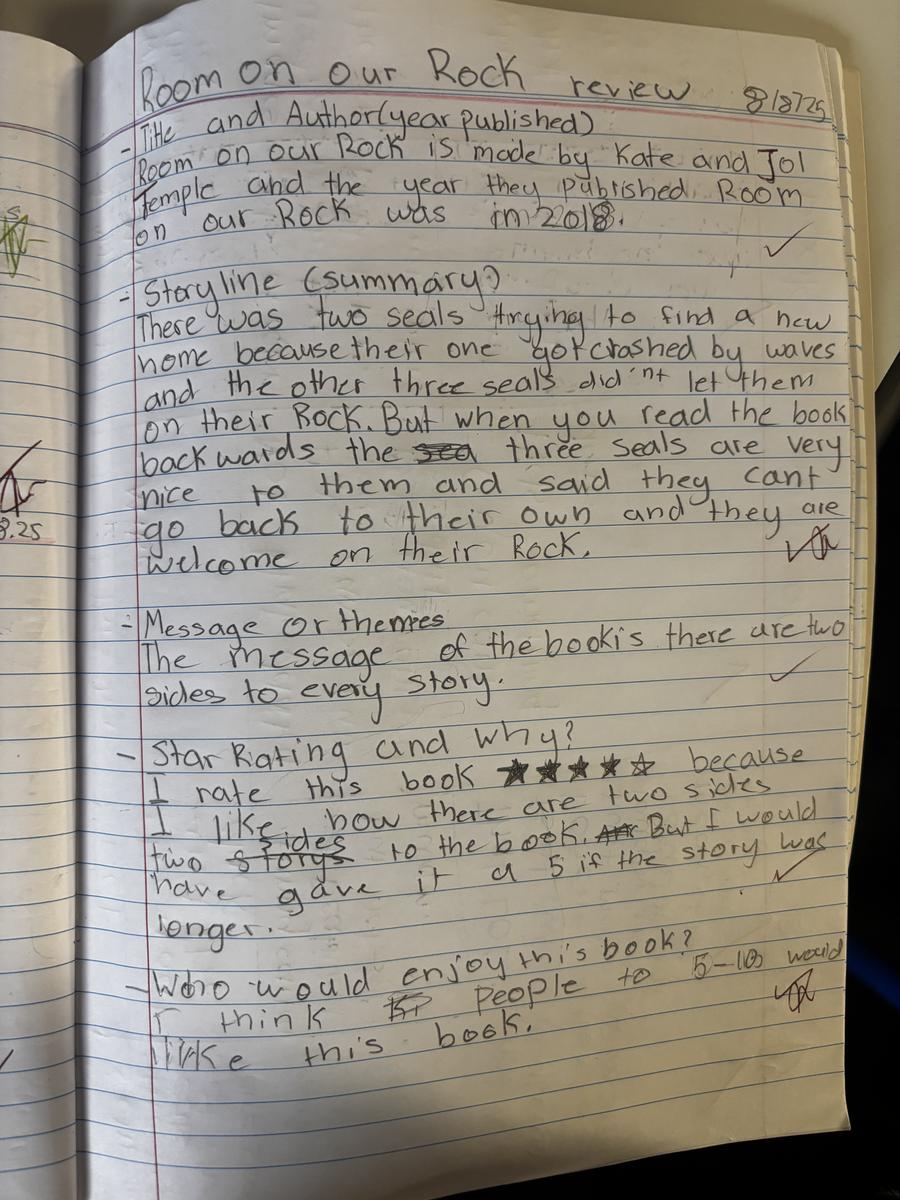 Room on our Rock review 8/8/25
- Title and Author(year published)
Room on our Rock is made by Kate and Jol
Temple and the year they published Room
on our Rock was in 2018.
- Storyline (summary?)
There was two seals trying to find a new
home because their one got crashed by waves
and the other three seals did'nt let them
on their Rock. But when you read the book
backwards the sea three seals are very
nice to them and said they cant
go back to their own and they are
8.25
welcome on their Rock.
- Message or themes
The message of the book is there are two
sides to every story.
- Star Rating and why?
I rate this book ★★★★☆ because
I like how there are two sides
sides
two storys to the book. But I would
have gave it a 5 if the story was
longer.
- Who would enjoy this book?
I think people to 5-10 would
like this book.